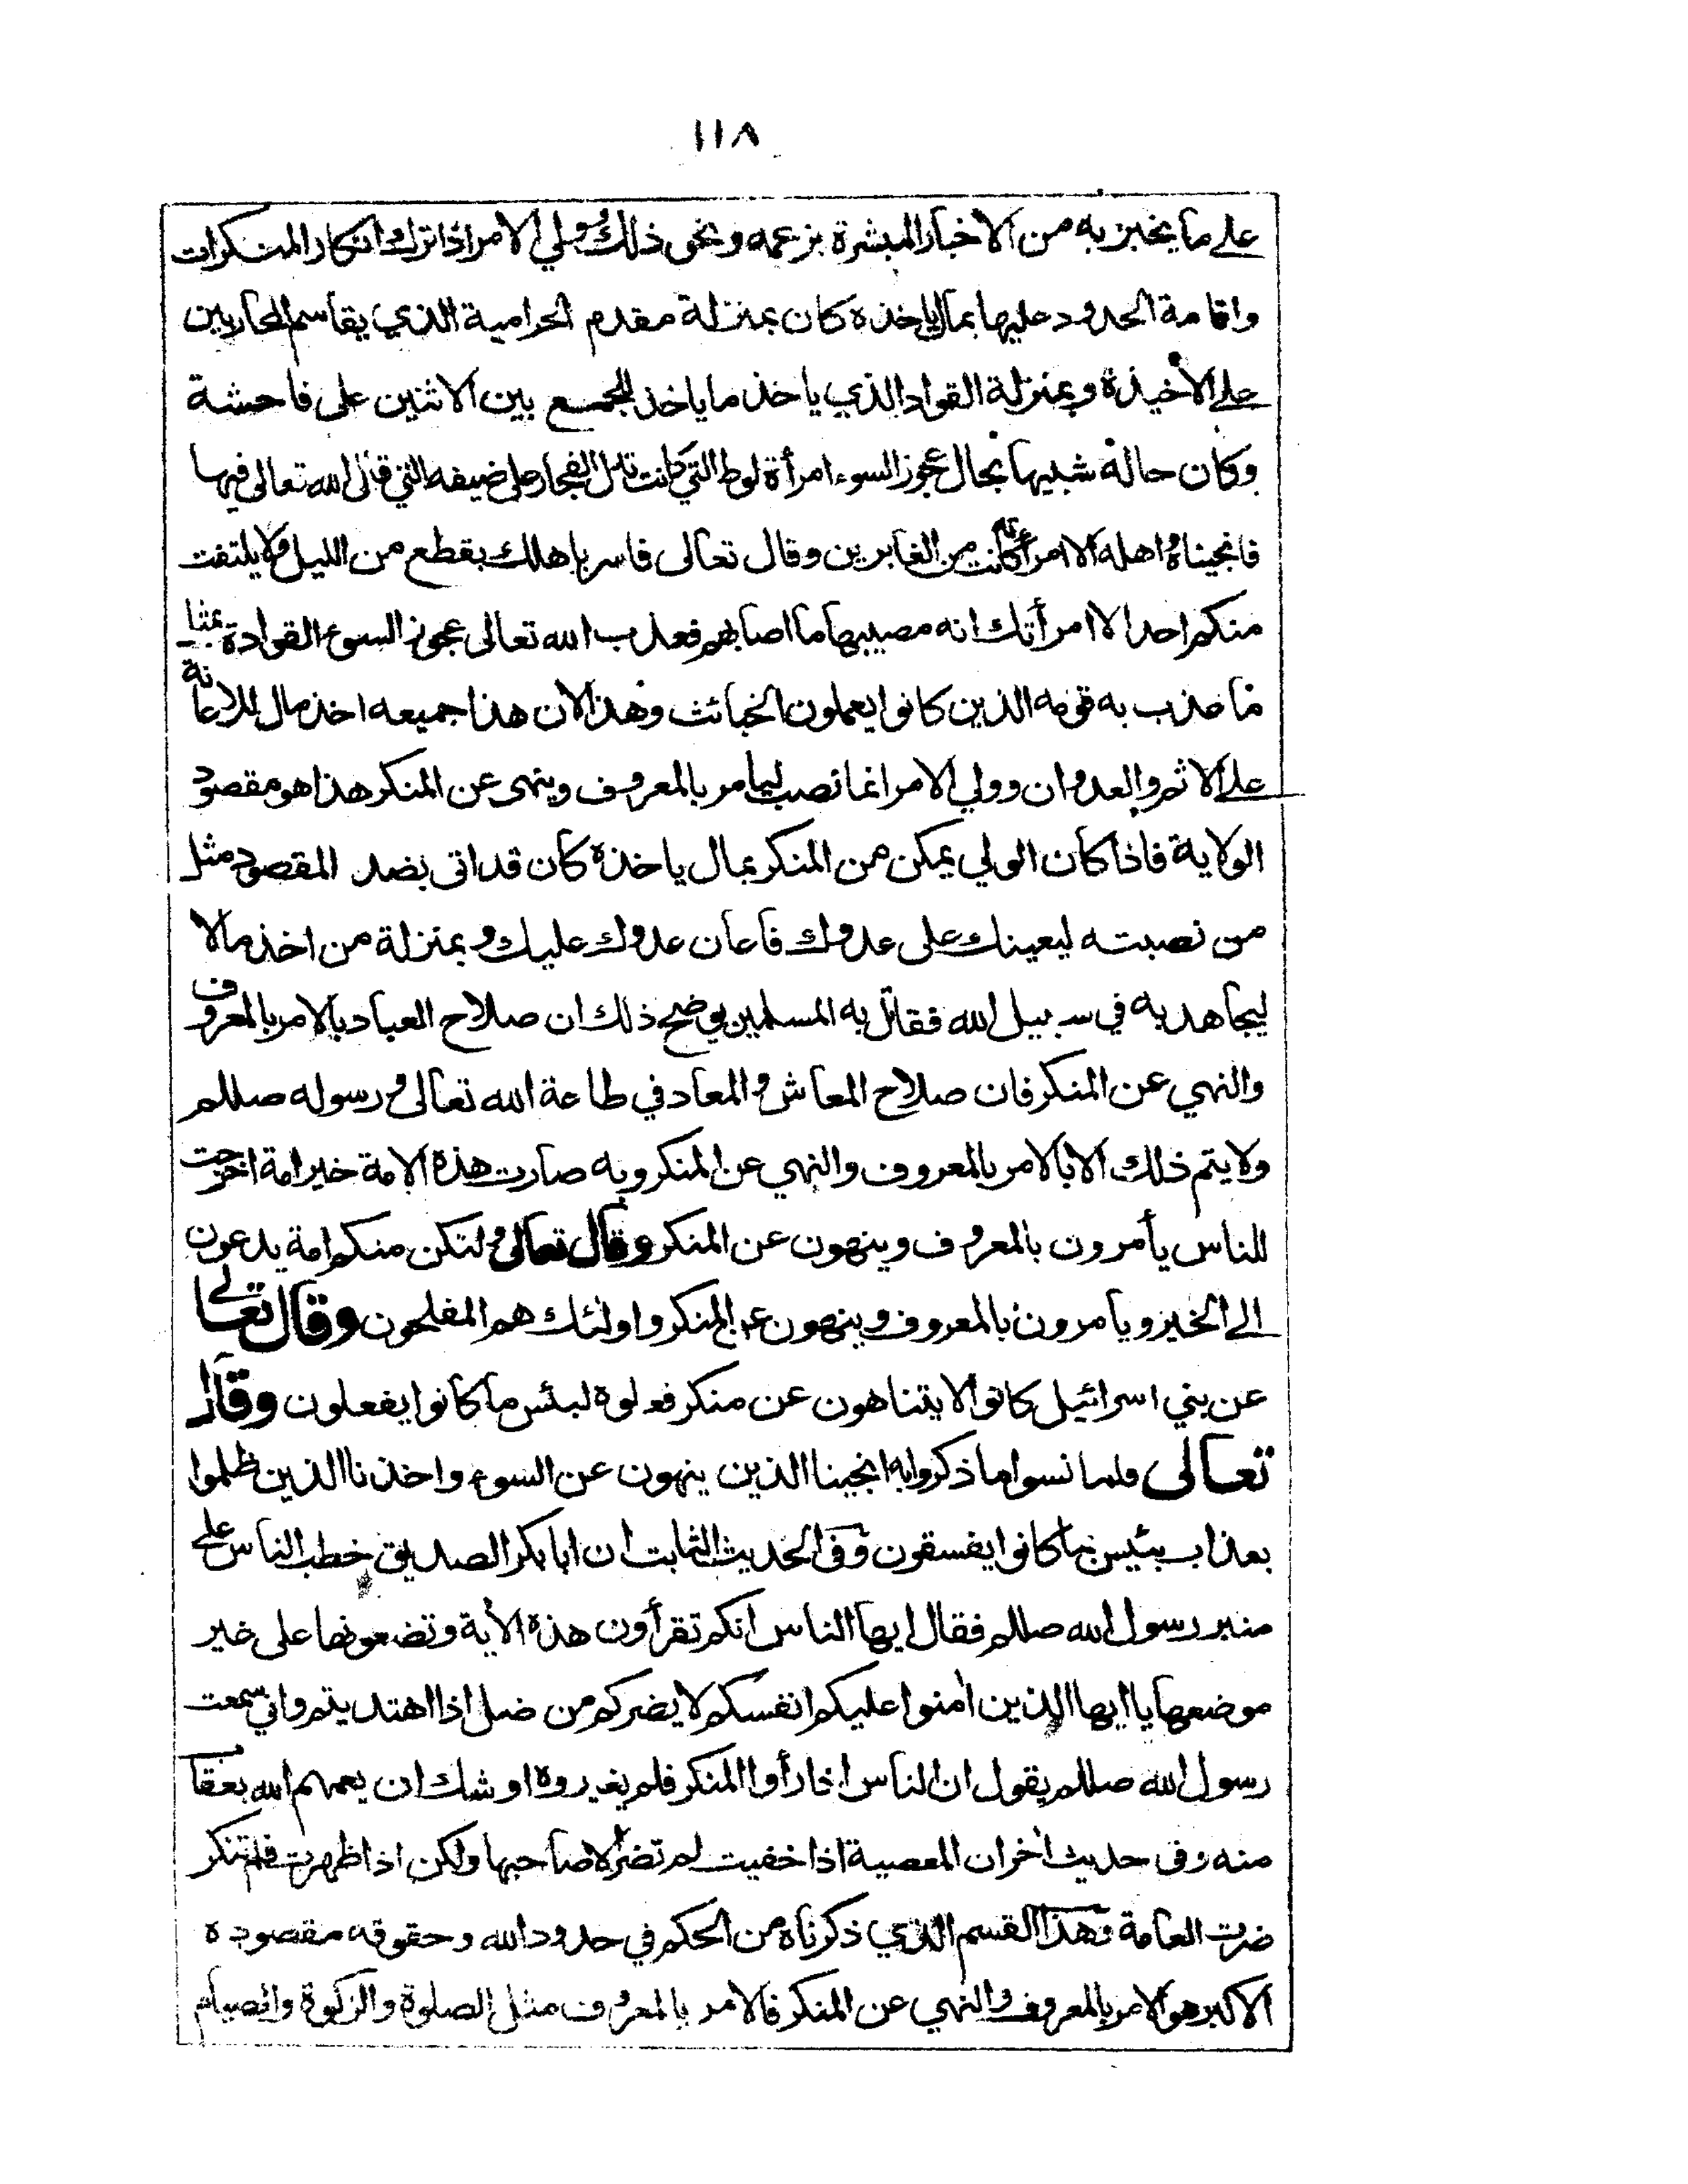 ١١٨
على ما يخبز به من الاخبار المبشرة بزعمه ونحو ذلك وولي الامر اذا ترك انكار المنكرات
واقامة الحدود عليها بمال ياخذه كان بمنزلة مقدم الحرامية الذي يقاسم المحاربين
على الاخيذة وبمنزلة القواد الذي ياخذ ما ياخذ ليجمع بين الاثنين على فاحشة
وكان حالة شبيها بحال عجوز السوء امرأة لوط التي كانت تدل الفجار على ضيفه التي قال الله تعالى فيها
فانجيناه واهله الا امرأته كانت من الغابرين وقال تعالى فاسر باهلك بقطع من الليل ولا يلتفت
منكم احدا الا امرأتك انه مصيبها ما اصابهم فعذب الله تعالى عجوز السوء القوادة بمثل
ما عذب به قومه الذين كانوا يعملون الخبائث وهذا لان هذا جميعه اخذ مال للاعانة
على الاثم والعدوان وولي الامر انما نصب ليامر بالمعروف وينهى عن المنكر هذا هو مقصود
الولاية فاذا كان الولي يمكن من المنكر بمال ياخذه كان قد اتى بضد المقصود مثل
من نصبته ليعينك على عدوك فاعان عدوك عليك وبمنزلة من اخذ مالا
ليجاهد به في سبيل الله فقاتل به المسلمين يوضح ذلك ان صلاح العباد بالامر بالمعروف
والنهي عن المنكر فان صلاح المعاش والمعاد في طاعة الله تعالى ورسوله صللم
ولا يتم ذلك الا بالامر بالمعروف والنهي عن المنكر وبه صارت هذه الامة خير امة اخرجت
للناس يأمرون بالمعروف وينهون عن المنكر وقال تعالى ولتكن منكم امة يدعون
الى الخير ويامرون بالمعروف وينهون عن المنكر واولئك هم المفلحون وقال تعالى
عن بني اسرائيل كانوا لا يتناهون عن منكر فعلوه لبئس ما كانوا يفعلون وقال
تعالى فلما نسوا ما ذكروا به انجينا الذين ينهون عن السوء واخذنا الذين ظلموا
بعذاب بئيس بما كانوا يفسقون وفي الحديث الثابت ان ابا بكر الصديق خطب الناس على
منبر رسول الله صللم فقال ايها الناس انكم تقرأون هذه الاية وتضعونها على خير
موضعها يا ايها الذين امنوا عليكم انفسكم لا يضركم من ضل اذا اهتديتم واني سمعت
رسول الله صللم يقول ان الناس اذا رأوا المنكر فلم يغيروه اوشك ان يعمهم الله بعقا
منه وفي حديث اخر ان المعصية اذا خفيت لم تضر الا صاحبها ولكن اذا ظهرت فلم تنكر
ضرت العامة وهذا القسم الذي ذكرناه من الحكم في حدود الله وحقوقه مقصوده
الاكبر هو الامر بالمعروف والنهي عن المنكر فالامر بالمعروف مثل الصلوة والزكوة والصيام